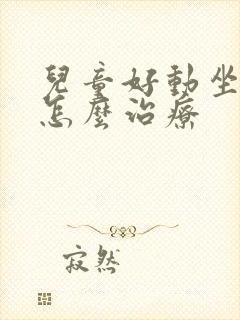 兒童好動坐
怎麼治療
寂然